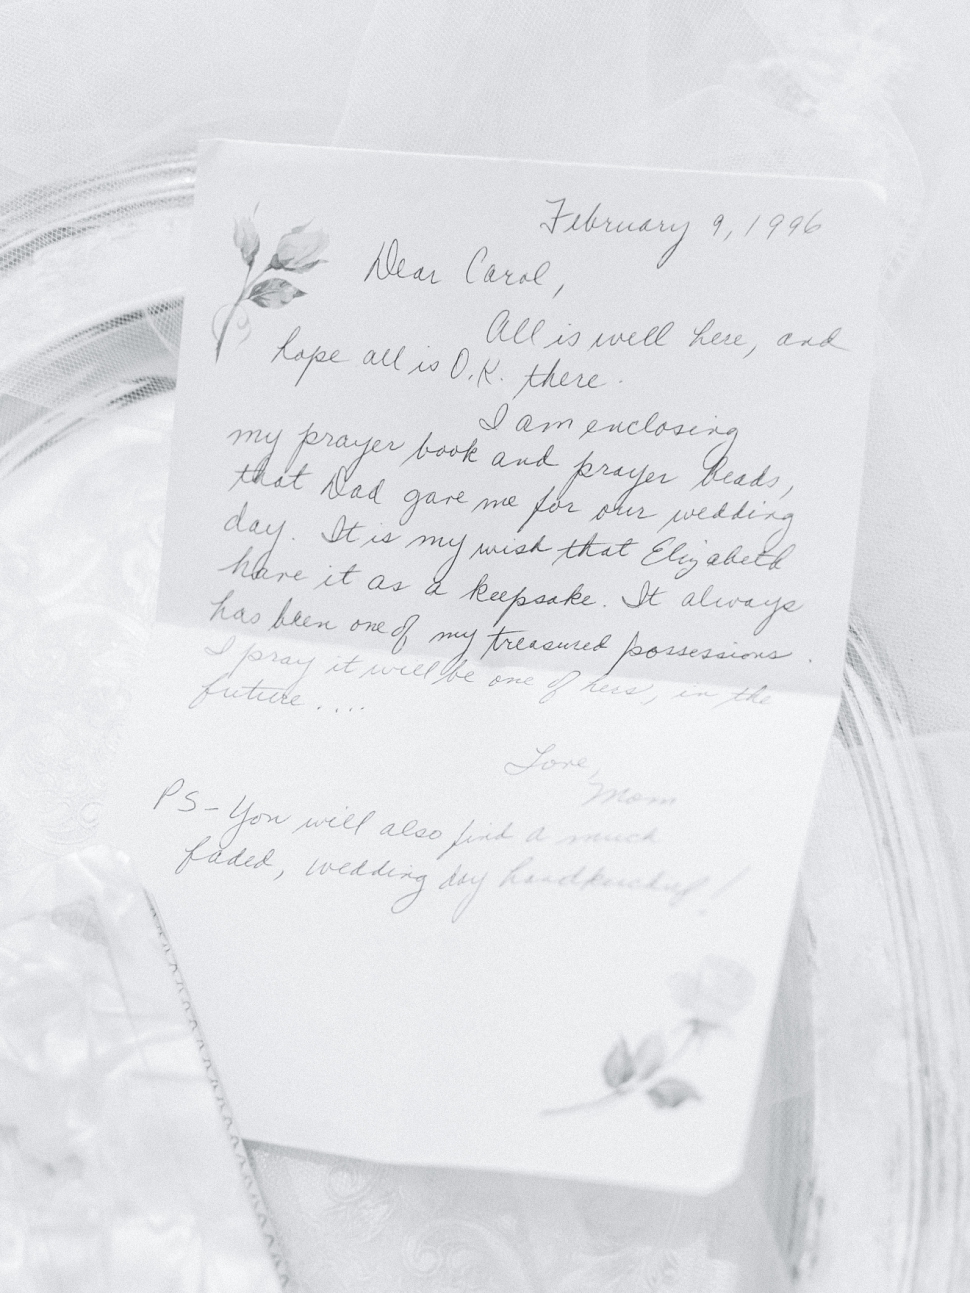 February 9, 1996
Dear Carol,
All is well here, and
hope all is O.K. there.
I am enclosing
my prayer book and prayer beads,
that Dad gave me for our wedding
day. It is my wish that Elizabeth
have it as a keepsake. It always
has been one of my treasured possessions.
I pray it will be one of hers, in the
future....
Love,
Mom
PS- You will also find a much
faded, wedding day handkerchief!